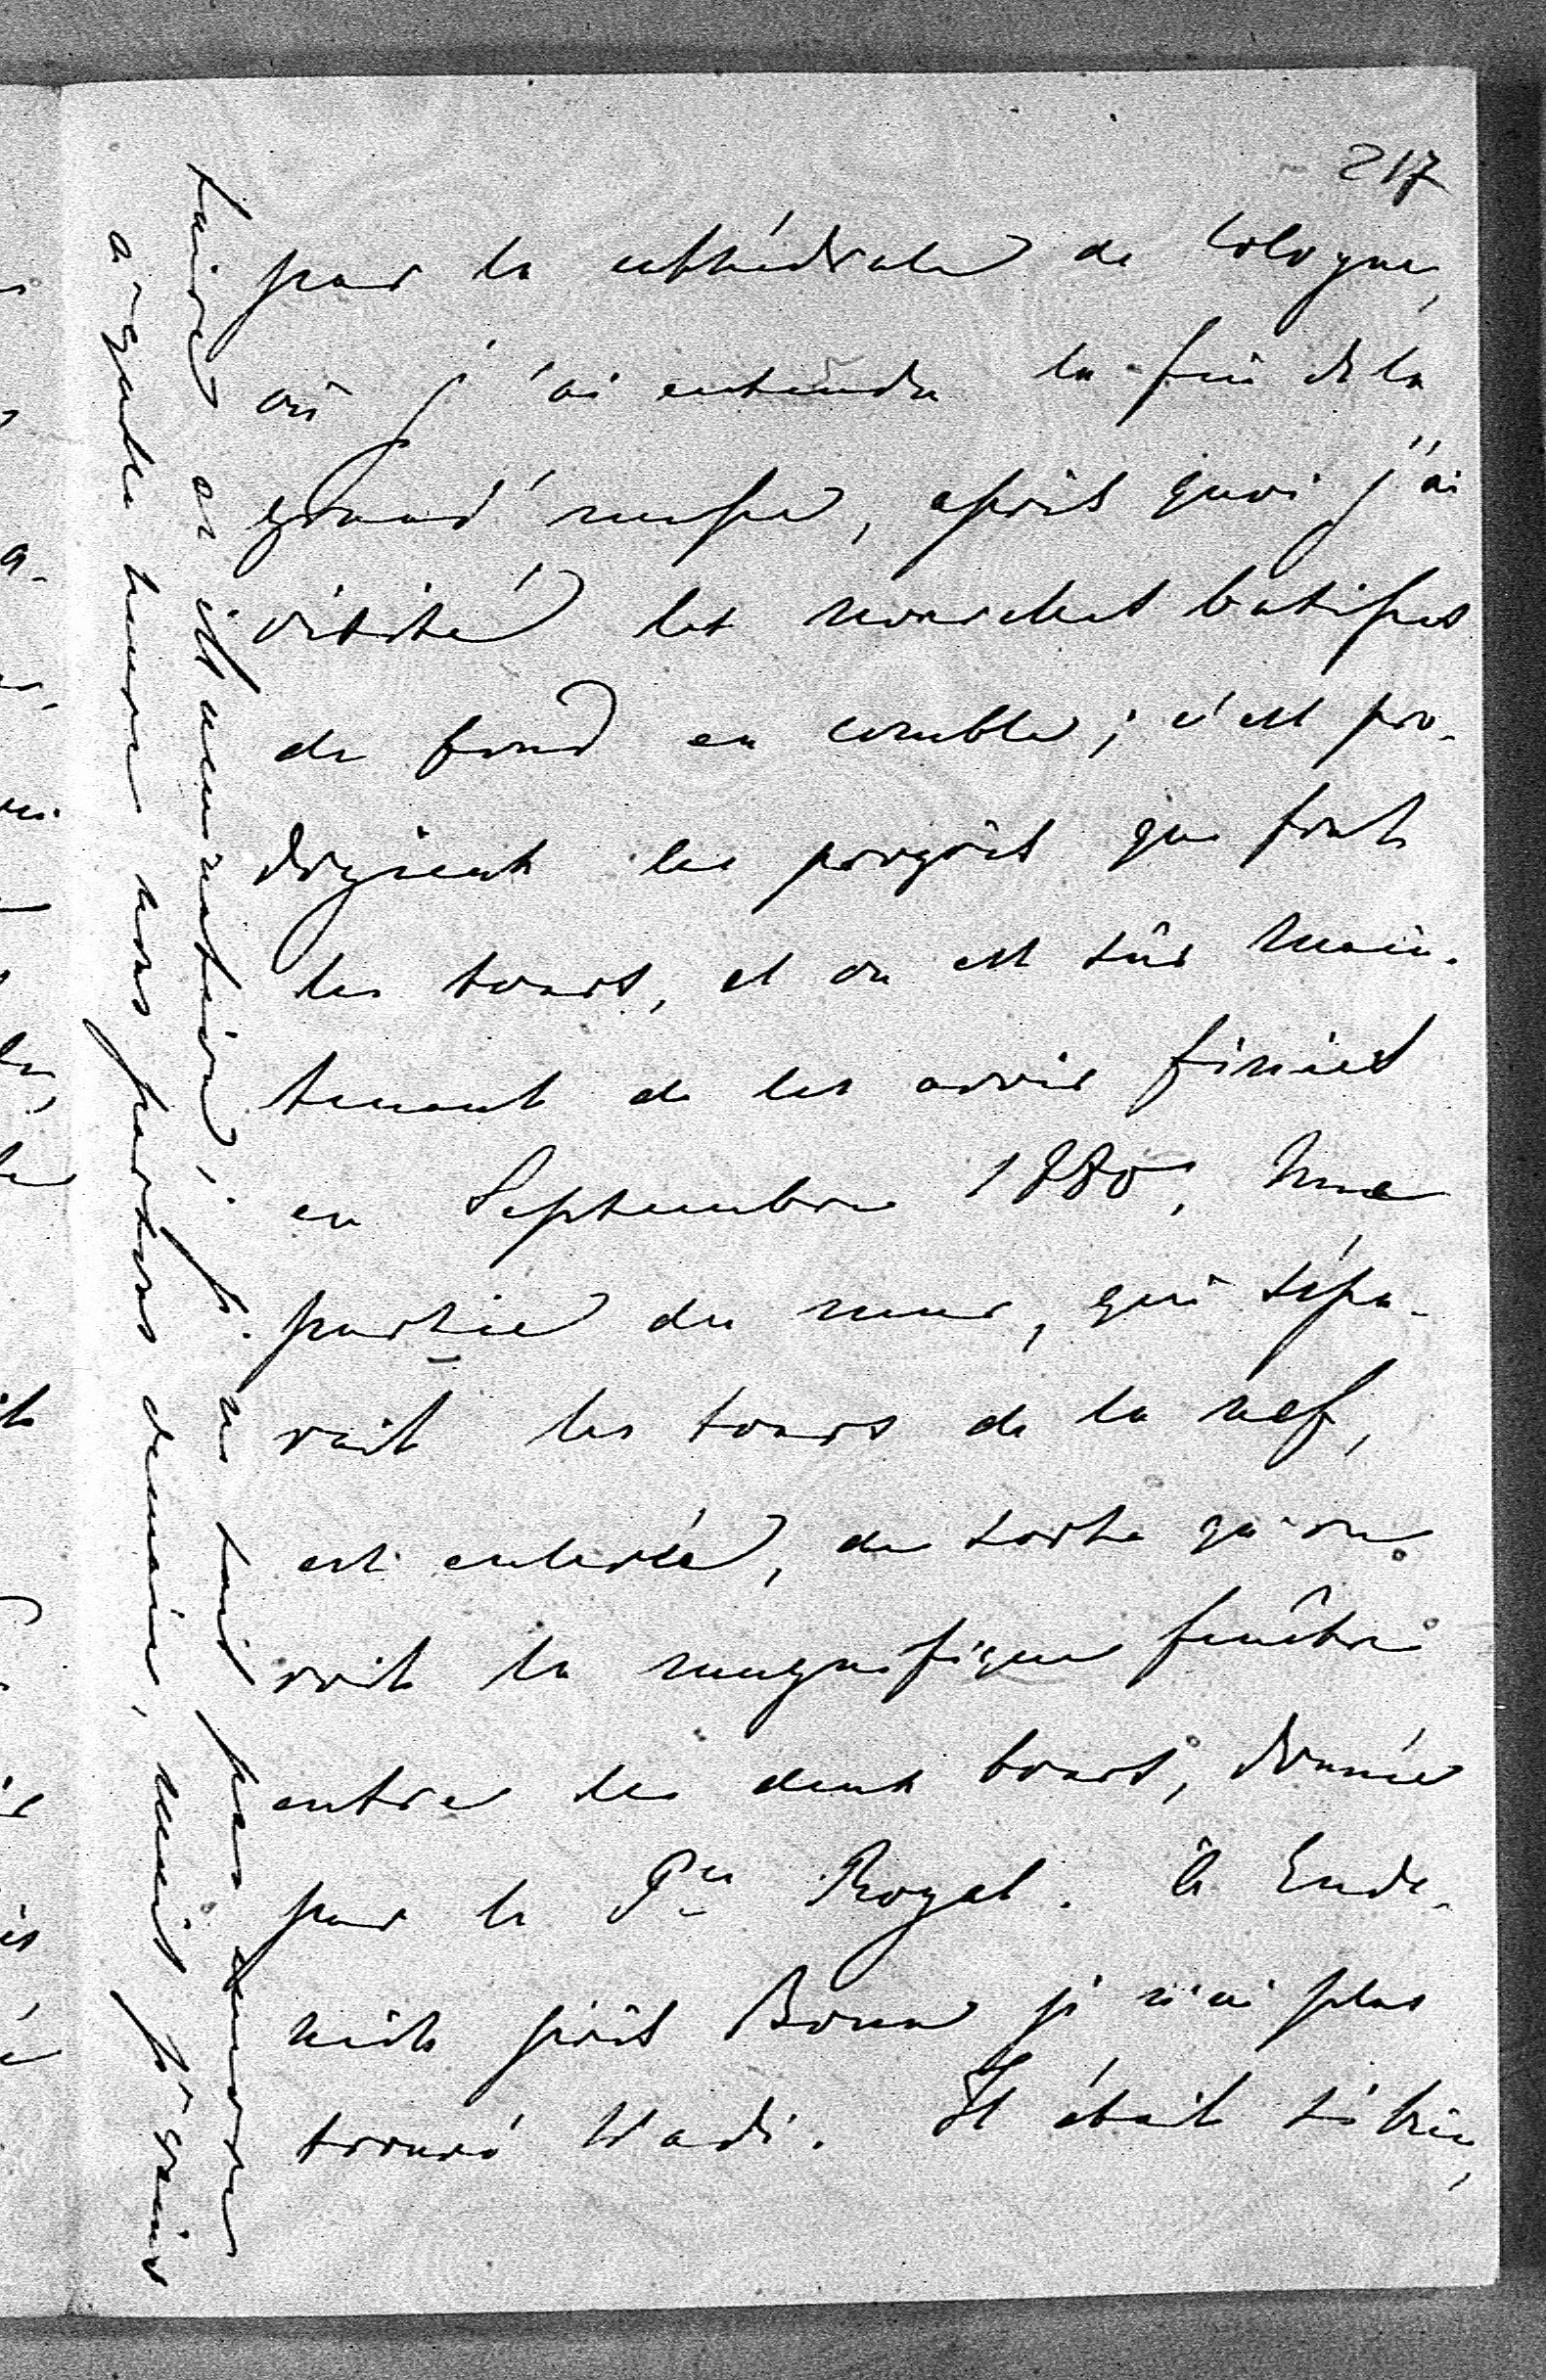 217
par la cathédrale de Cologne,
où j'ai entendu la fin de la
grand'messe, après quoi j'ai
visité les nouvelles batisses
de fond en comble; c'est pro-
digieux les progrès que font
les tours, et on est sûr main-
tenant de les avoir finies
en Septembre 1880. Une
partie du mur, qui sépa-
rait les tours de la nef,
est enlevée, de sorte qu'on
voit la magnifique fenêtre
entre les deux tours, donnée
par le Pce Royal. à Ende-
nich près Bonn je n'ai plus
trouvé Wadi. Il était si bien,
taire et
je ne sais pas encore
à quelle heure nous partons demain, mais